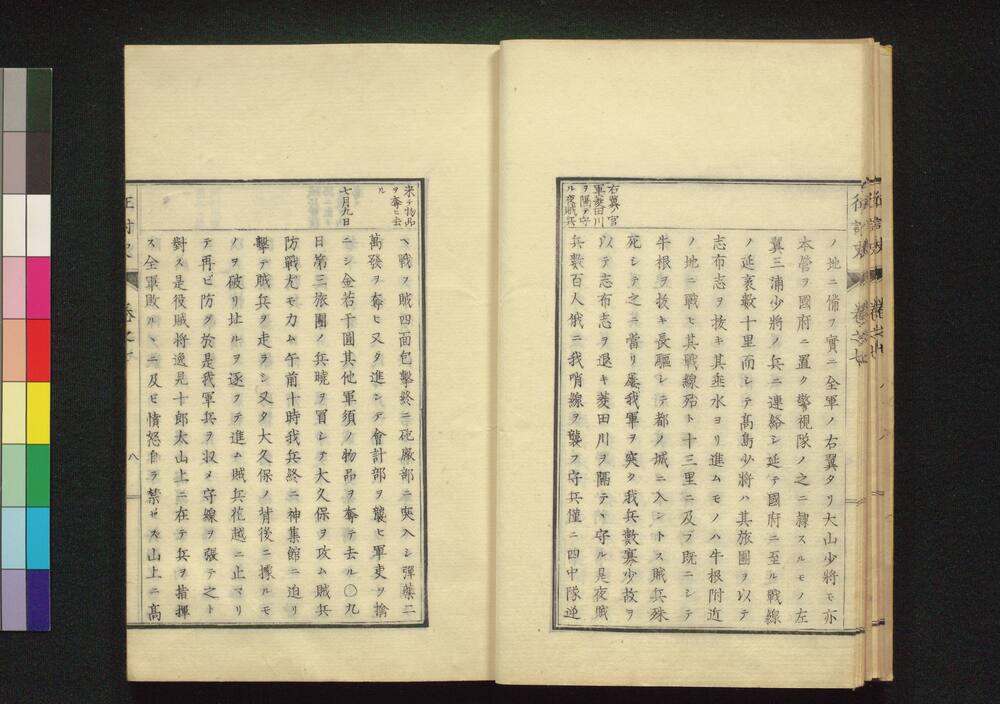 ノ地ニ備フ實ニ全軍ノ右翼タリ大山少將モ亦
本營ヲ國府ニ置ク警視隊ノ之ニ隷スルモノ左
翼三浦少將ノ兵ニ連絡シ延テ國府ニ至ル戰線
ノ延袤數十里而シテ高島少將ハ其旅團ヲ以テ
志布志ヲ拔キ其垂水ヨリ進ムモノハ牛根附近
ノ地ニ戰ヒ其戰線殆ト十三里ニ及ブ既ニシテ
牛根ヲ拔キ長驅シテ都ノ城ニ入ントス賊兵殊
死シテ之ニ當リ屢我軍ヲ突ク我兵數寡少故ヲ
以テ志布志ヲ退キ菱田川ヲ隔テヽ守ル是夜賊
兵數百人俄ニ我哨線ヲ襲フ守兵僅ニ四中隊逆
右翼官
軍菱田川
ヲ隔テ守
ル夜賊兵
來テ物品
ヲ奪ヒ去
ル
七月九日
ヘ戰フ賊四面包擊終ニ砲廠部ニ突入シ彈藥二
萬發ヲ奪ヒ又タ進ンデ會計部ヲ襲ヒ軍吏ヲ擒
ニシ金若干圓其他軍須ノ物品ヲ奪テ去ル〇九
日第三旅團ノ兵曉ヲ冒シテ大久保ヲ攻ム賊兵
防戰尤モ力ム午前十時我兵終ニ神集館ニ迫リ
擊テ賊兵ヲ走ラシ又タ大久保ノ背後ニ據ルモ
ノヲ破リ北ルヲ逐フテ進ム賊兵花越ニ止マリ
テ再ビ防グ於是我軍兵ヲ収メ守線ヲ張テ之ト
對ス是役賊將逸見十郎太山上ニ在テ兵ヲ指揮
ス全軍敗ルヽニ及ビ憤怒自ラ禁ゼス山上ニ高
八